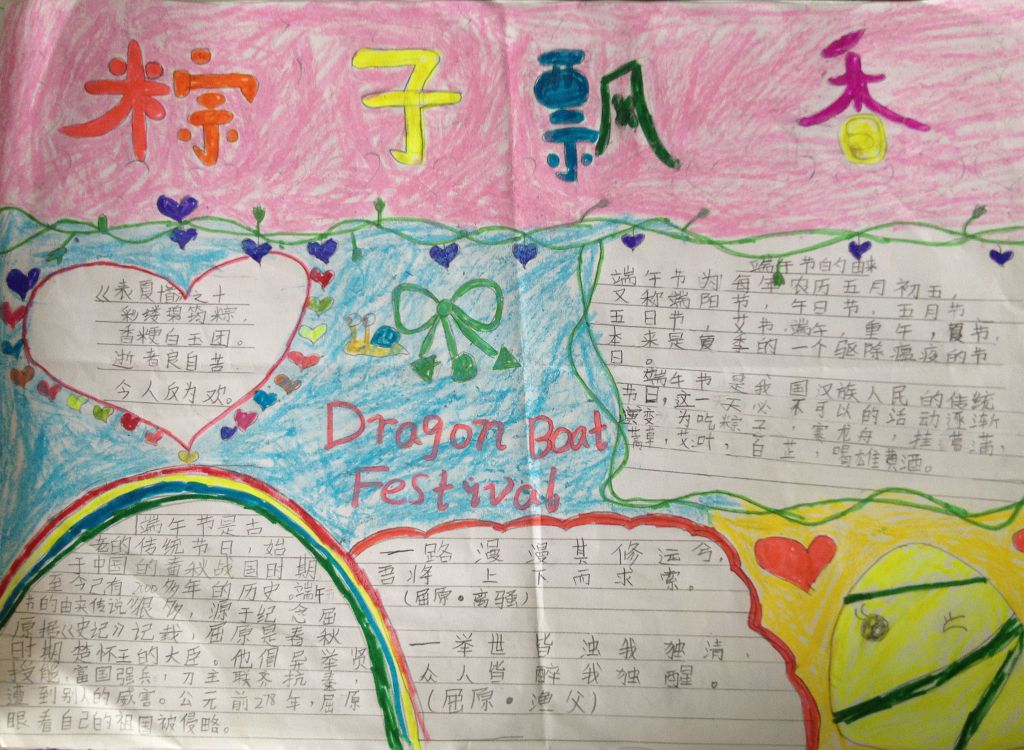 粽子飘香
《表夏情之十
彩缕碧筠粽,
香粳白玉团。
逝者良自苦
今人反为欢。
Dragon Boat
Festival
端午节的由来
端午节为每年农历五月初五,
又称端阳节,午日节,五月节
五日节,艾节,端午,重午,夏节.
本来是夏季的一个驱除瘟疫的节
日。
端午节是我国汉族人民的传统
节日,这一天必不可以的活动逐渐
演变为吃粽子,赛龙舟,挂菖蒲,
蒿草,艾叶,白芷,喝雄黄酒。
端午节是古
老的传统节日,始
于中国的春秋战国时期
至今已有2000多年的历史。端午
节的由来传说很多,源于纪念屈
原据《史记》记载,屈原是春秋
时期楚怀王的大臣。他倡导举贤
授能,富国强兵,力主联齐抗秦,
遭到别人的威害。公元前278年,屈原
眼看自己的祖国被侵略。
一路漫漫其修远兮,
吾将上下而求索。
(屈原·离骚)
一举世皆浊我独清,
众人皆醉我独醒。
(屈原·渔父)